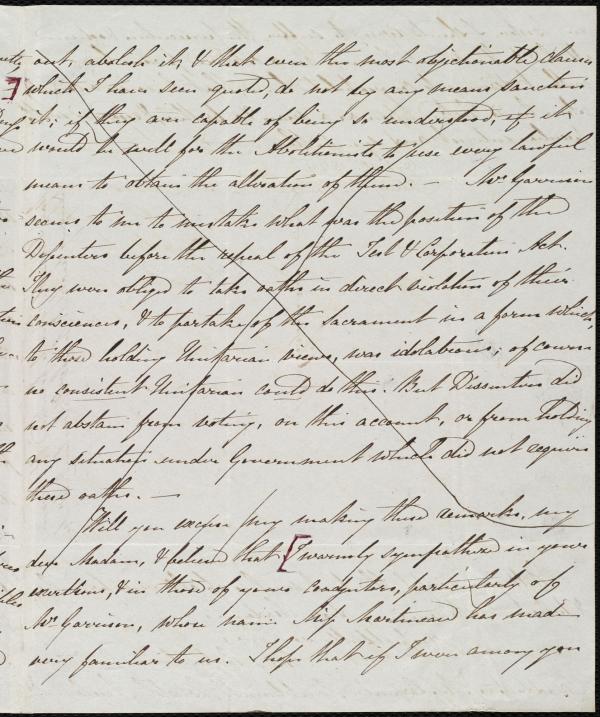 out, abolish it, & that even the most objectionable clauses
which I have seen quoted, do not by any means sanction
it; if they are capable of being so understood, if it
would be well for the Abolitionists to use every lawful
means to obtain the alteration of them. — Mr Garrison
seems to me to mistake what was the position of the
Dissenters before the repeal of the Test & Corporation Act.
They were obliged to take oaths in direct violation of their
consciences, & to partake of the Sacrament in a form which,
to those holding Unitarian views, was idolatrous; of course
no consistent Unitarian could do this. But Dissenters did
not abstain from voting, on this account, or from holding
any situation under Government which did not require
these oaths. —
Will you excuse my making these remarks, my
dear Madam, & believe that [I warmly sympathize in your
exertions, & in those of your coadjutors, particularly of
Mr Garrison, whose name Miss Martineau has made
very familiar to us. I hope that if I were among you